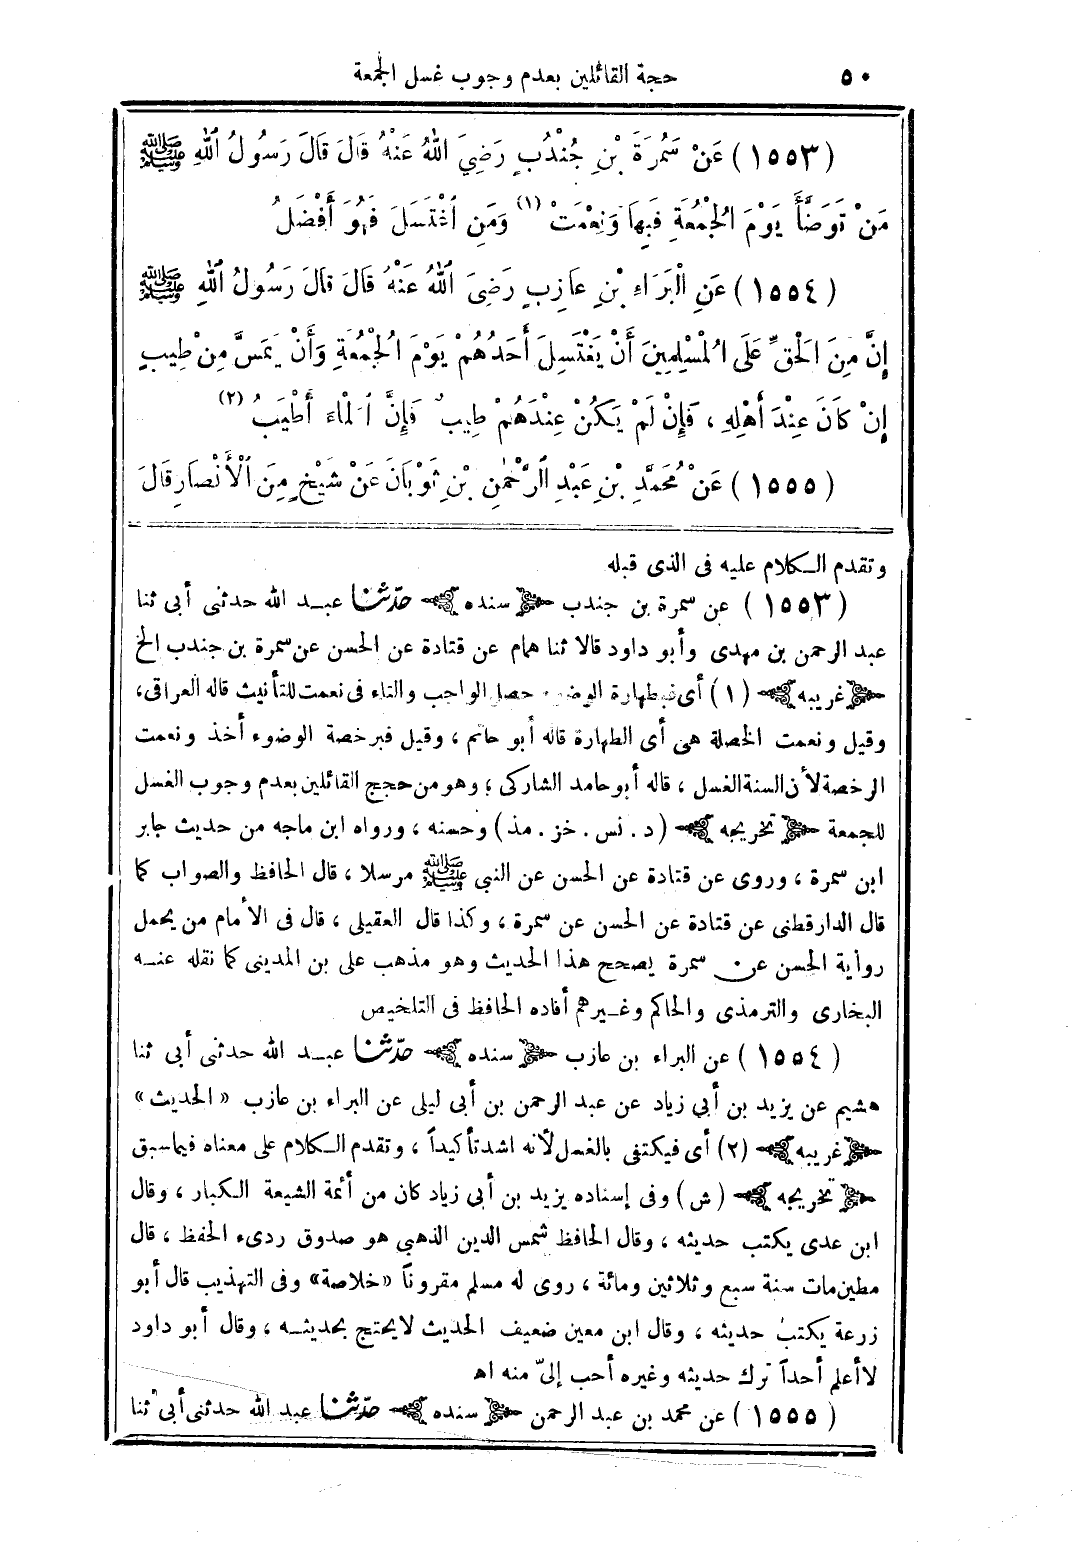 ٥٠ حجة القائلين بعدم وجوب غسل الجمعة
(١٥٥٣) عَنْ سَمُرَةَ بْنِ جُنْدُبٍ رَضِيَ اللهُ عَنْهُ قَالَ قَالَ رَسُولُ اللهِ ﷺ
مَنْ تَوَضَّأَ يَوْمَ الْجُمْعَةِ فَبِهَا وَنِعْمَتْ (١) وَمَنِ اغْتَسَلَ فَهُوَ أَفْضَلُ
(١٥٥٤) عَنِ الْبَرَاءِ بْنِ عَازِبٍ رَضِيَ اللهُ عَنْهُ قَالَ قَالَ رَسُولُ اللهِ ﷺ
إِنَّ مِنَ الْحَقِّ عَلَى الْمُسْلِمِينَ أَنْ يَغْتَسِلَ أَحَدُهُمْ يَوْمَ الْجُمْعَةِ وَأَنْ يَمَسَّ مِنْ طِيبٍ
إِنْ كَانَ عِنْدَ أَهْلِهِ ، فَإِنْ لَمْ يَكُنْ عِنْدَهُمْ طِيبٌ فَإِنَّ الْمَاءَ أَطْيَبُ (٢)
(١٥٥٥) عَنْ مُحَمَّدِ بْنِ عَبْدِ الرَّحْمٰنِ بْنِ ثَوْبَانَ عَنْ شَيْخٍ مِنَ الْأَنْصَارِ قَالَ
وتقدم الـكلام عليه فى الذى قبله
(١٥٥٣) عن سمرة بن جندب ﴿ سنده ﴾ حدّثنا عبـد الله حدثنى أبى ثنا
عبد الرحمن بن مهدى وأبو داود قالا ثنا همام عن قتادة عن الحسن عن سمرة بن جندب الخ
﴿ غريبه ﴾ (١) أى فبطهارة الوضوء حصل الواجب والتاء فى نعمت للتأنيث قاله العراقى،
وقيل ونعمت الخصلة هى أى الطهارة قاله أبو حاتم ، وقيل فبرخصة الوضوء أخذ ونعمت
الرخصة لأن السنة الغسل ، قاله أبو حامد الشاركى ؛ وهو من حجج القائلين بعدم وجوب الغسل
للجمعة ﴿ تخريجه ﴾ (د . نس . خز . مذ) وحسنه ، ورواه ابن ماجه من حديث جابر
ابن سمرة ، وروى عن قتادة عن الحسن عن النبى ﷺ مرسلا ، قال الحافظ والصواب كما
قال الدارقطنى عن قتادة عن الحسن عن سمرة ، وكذا قال العقيلى ، قال فى الأمام من يحمل
رواية الحسن عن سمرة يصحح هذا الحديث وهو مذهب على بن المدينى كما نقله عنـه
البخارى والترمذى والحاكم وغـيرهم أفاده الحافظ فى التلخيص
(١٥٥٤) عن البراء بن عازب ﴿ سنده ﴾ حدّثنا عبـد الله حدثنى أبى ثنا
هشيم عن يزيد بن أبي زياد عن عبد الرحمن بن أبى ليلى عن البراء بن عازب « الحديث »
﴿ غريبه ﴾ (٢) أى فيكتفى بالغسل لأنه اشد تأكيداً ، وتقدم الـكلام على معناه فيما سبق
﴿ تخريجه ﴾ (ش) وفى إسناده يزيد بن أبى زياد كان من أئمة الشيعة الـكبار ، وقال
ابن عدى يكتب حديثه ، وقال الحافظ شمس الدين الذهبى هو صدوق ردىء الحفظ ، قال
مطين مات سنة سبع وثلاثين ومائة ، روى له مسلم مقروناً «خلاصة» وفى التهذيب قال أبو
زرعة يكتب حديثه ، وقال ابن معين ضعيف الحديث لا يحتج بحديثـه ، وقال أبو داود
لا أعلم أحداً ترك حديثه وغيره أحب إلىّ منه اهـ
(١٥٥٥) عن محمد بن عبد الرحمن ﴿ سنده ﴾ حدّثنا عبد الله حدثنى أبى ثنا